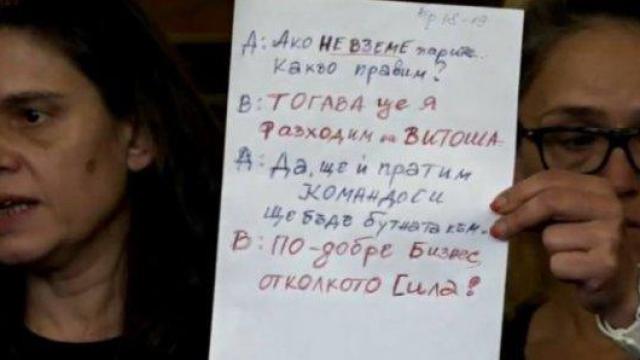 стр 18-19
Д: Ако НЕ ВЗЕМЕ парите..
Какво правим?
В: ТОГАВА ще я
разходим на ВИТОША
Д: Да, ще ѝ пратим
КОМАНДОСИ
ще бъде бутната към..
В: ПО-ДОБРЕ БИЗНЕС,
ОТКОЛКОТО Сила!